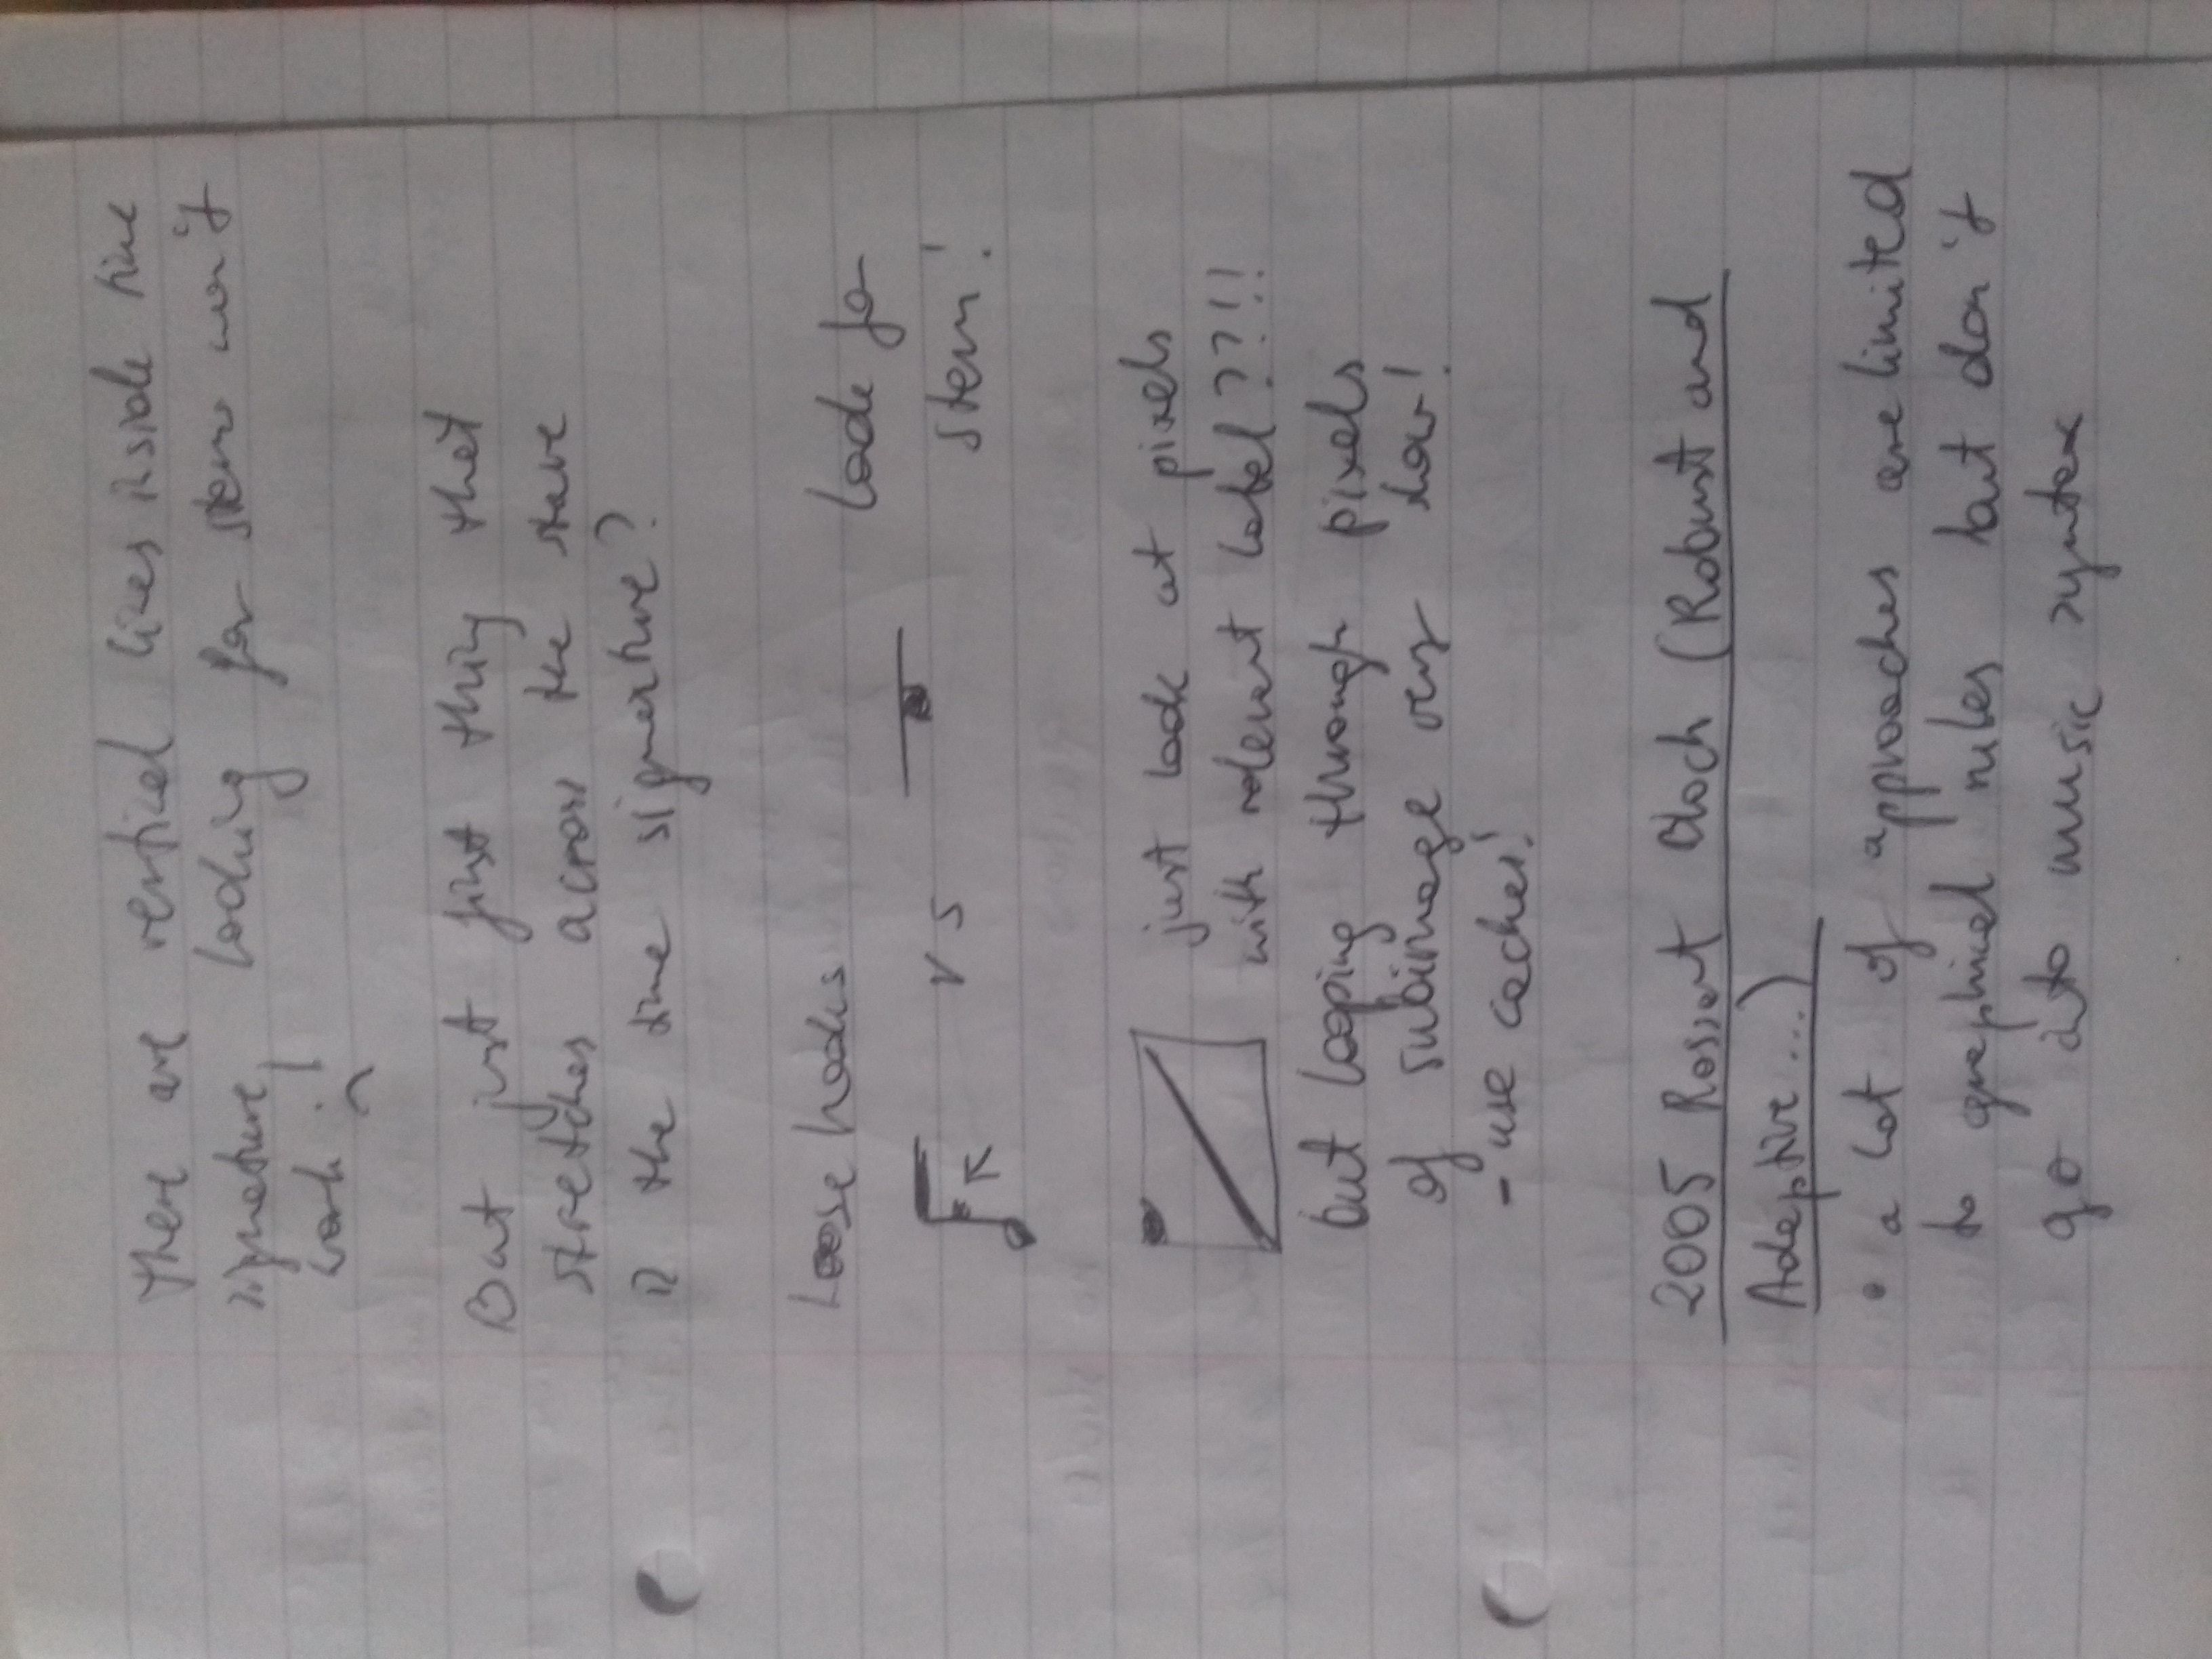 There are vertical lines inside time
signature, looking for stems won't
work :(
But just first thing that
stretches across the stave
is the time signature?
Loose hooks
vs
look for
stem!
just look at pixels
with relevant label??!!
but looping through pixels
of subimage very slow!
- use caches!
2005 Rossant Bloch (Robust and
Adaptive ...)
• a lot of approaches are limited
to graphical rules but don't
go into music syntax